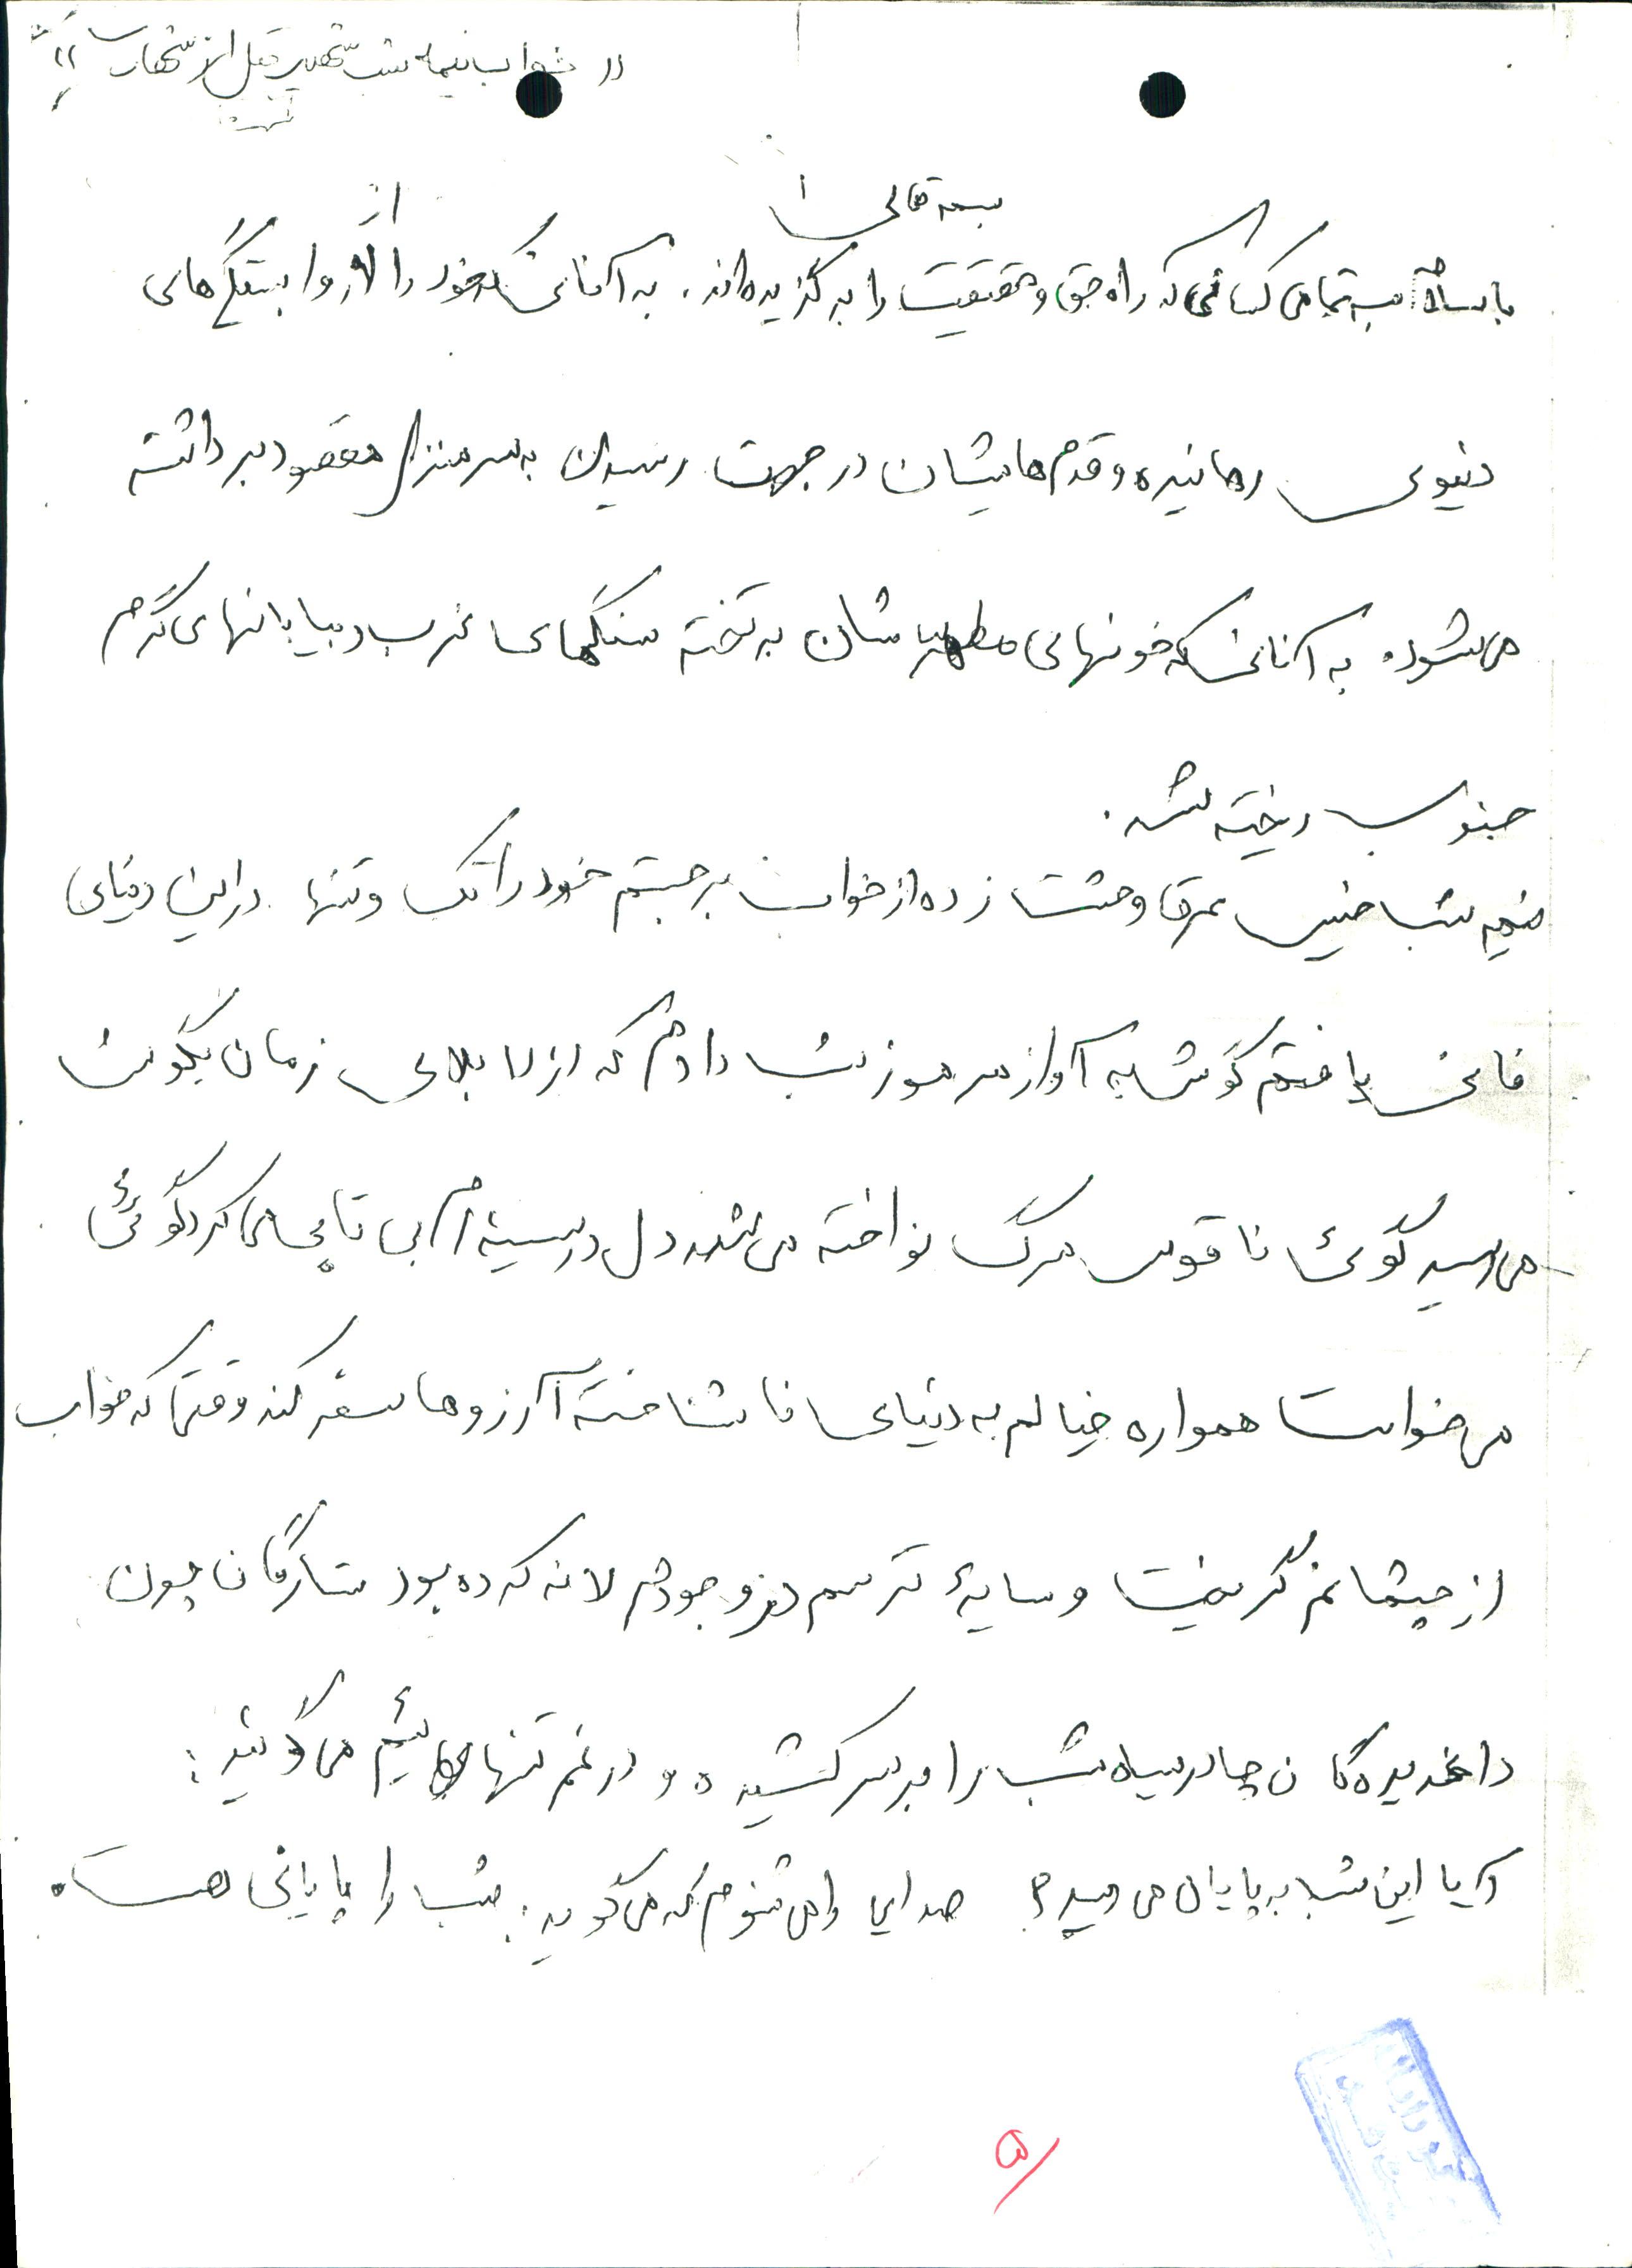 "خواب نیمه شب شهید قبل از شهادت"
بسمه تعالی
با سلام به تمامی کسانی که راه حق و حقیقت را برگزیده‌اند. به آنانی که خود را از وابستگی‌های
دنیوی رهانیده و قدم‌هایشان در جهت رسیدن به سر منزل مقصود برداشته
می‌شود. به آنانی که خونهای مطهرشان بر تخته سنگهای غرب و بیابانهای گرم
جنوب ریخته شد.
نیمه شب خیس عرق وحشت زده از خواب برجستم خود را تک و تنها در این دنیای
فانی یافتم گوش به آواز مرموز شب دادم که از لا بلای زمان بگوش
می‌رسید گوئی ناقوس مرگ نواخته می‌شد دل در سینه‌ام بی تابی می‌کرد گوئی
می‌خواست همواره خیالم به دنیای ناشناخته آرزوها سفر کند وقتی که خواب
از چشمانم گریخت و سایهٔ ترسم در وجودم لانه کرده بود ستارگان چون
داغدیده‌گان چادر سیاه شب را بر سر کشیده و در غم تنهائیم می‌گویند:
آیا این شب به پایان می‌رسد؟ صدایی را می‌شنوم که می‌گوید: شب را پایانی هست.
۵